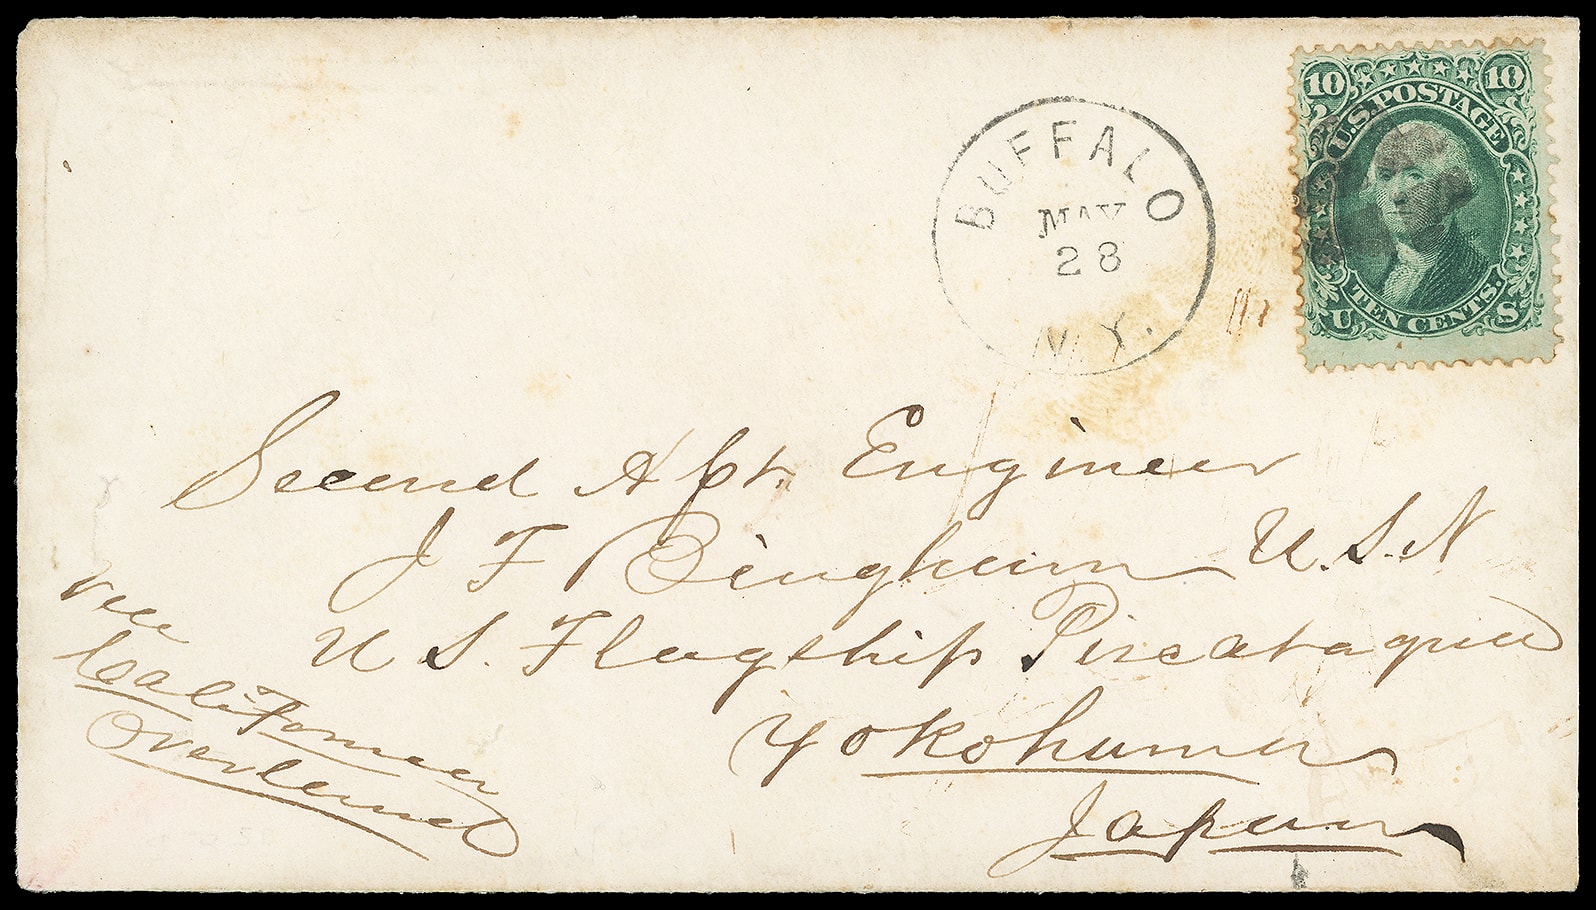 10 10
U.S. POSTAGE
TEN CENTS.
U S
BUFFALO
MAY
28
N.Y.
Second Asst. Engineer
J F Bingham U.S.N
U S. Flagship Piscataqua
Yokohama
Japan
via
California
Overland